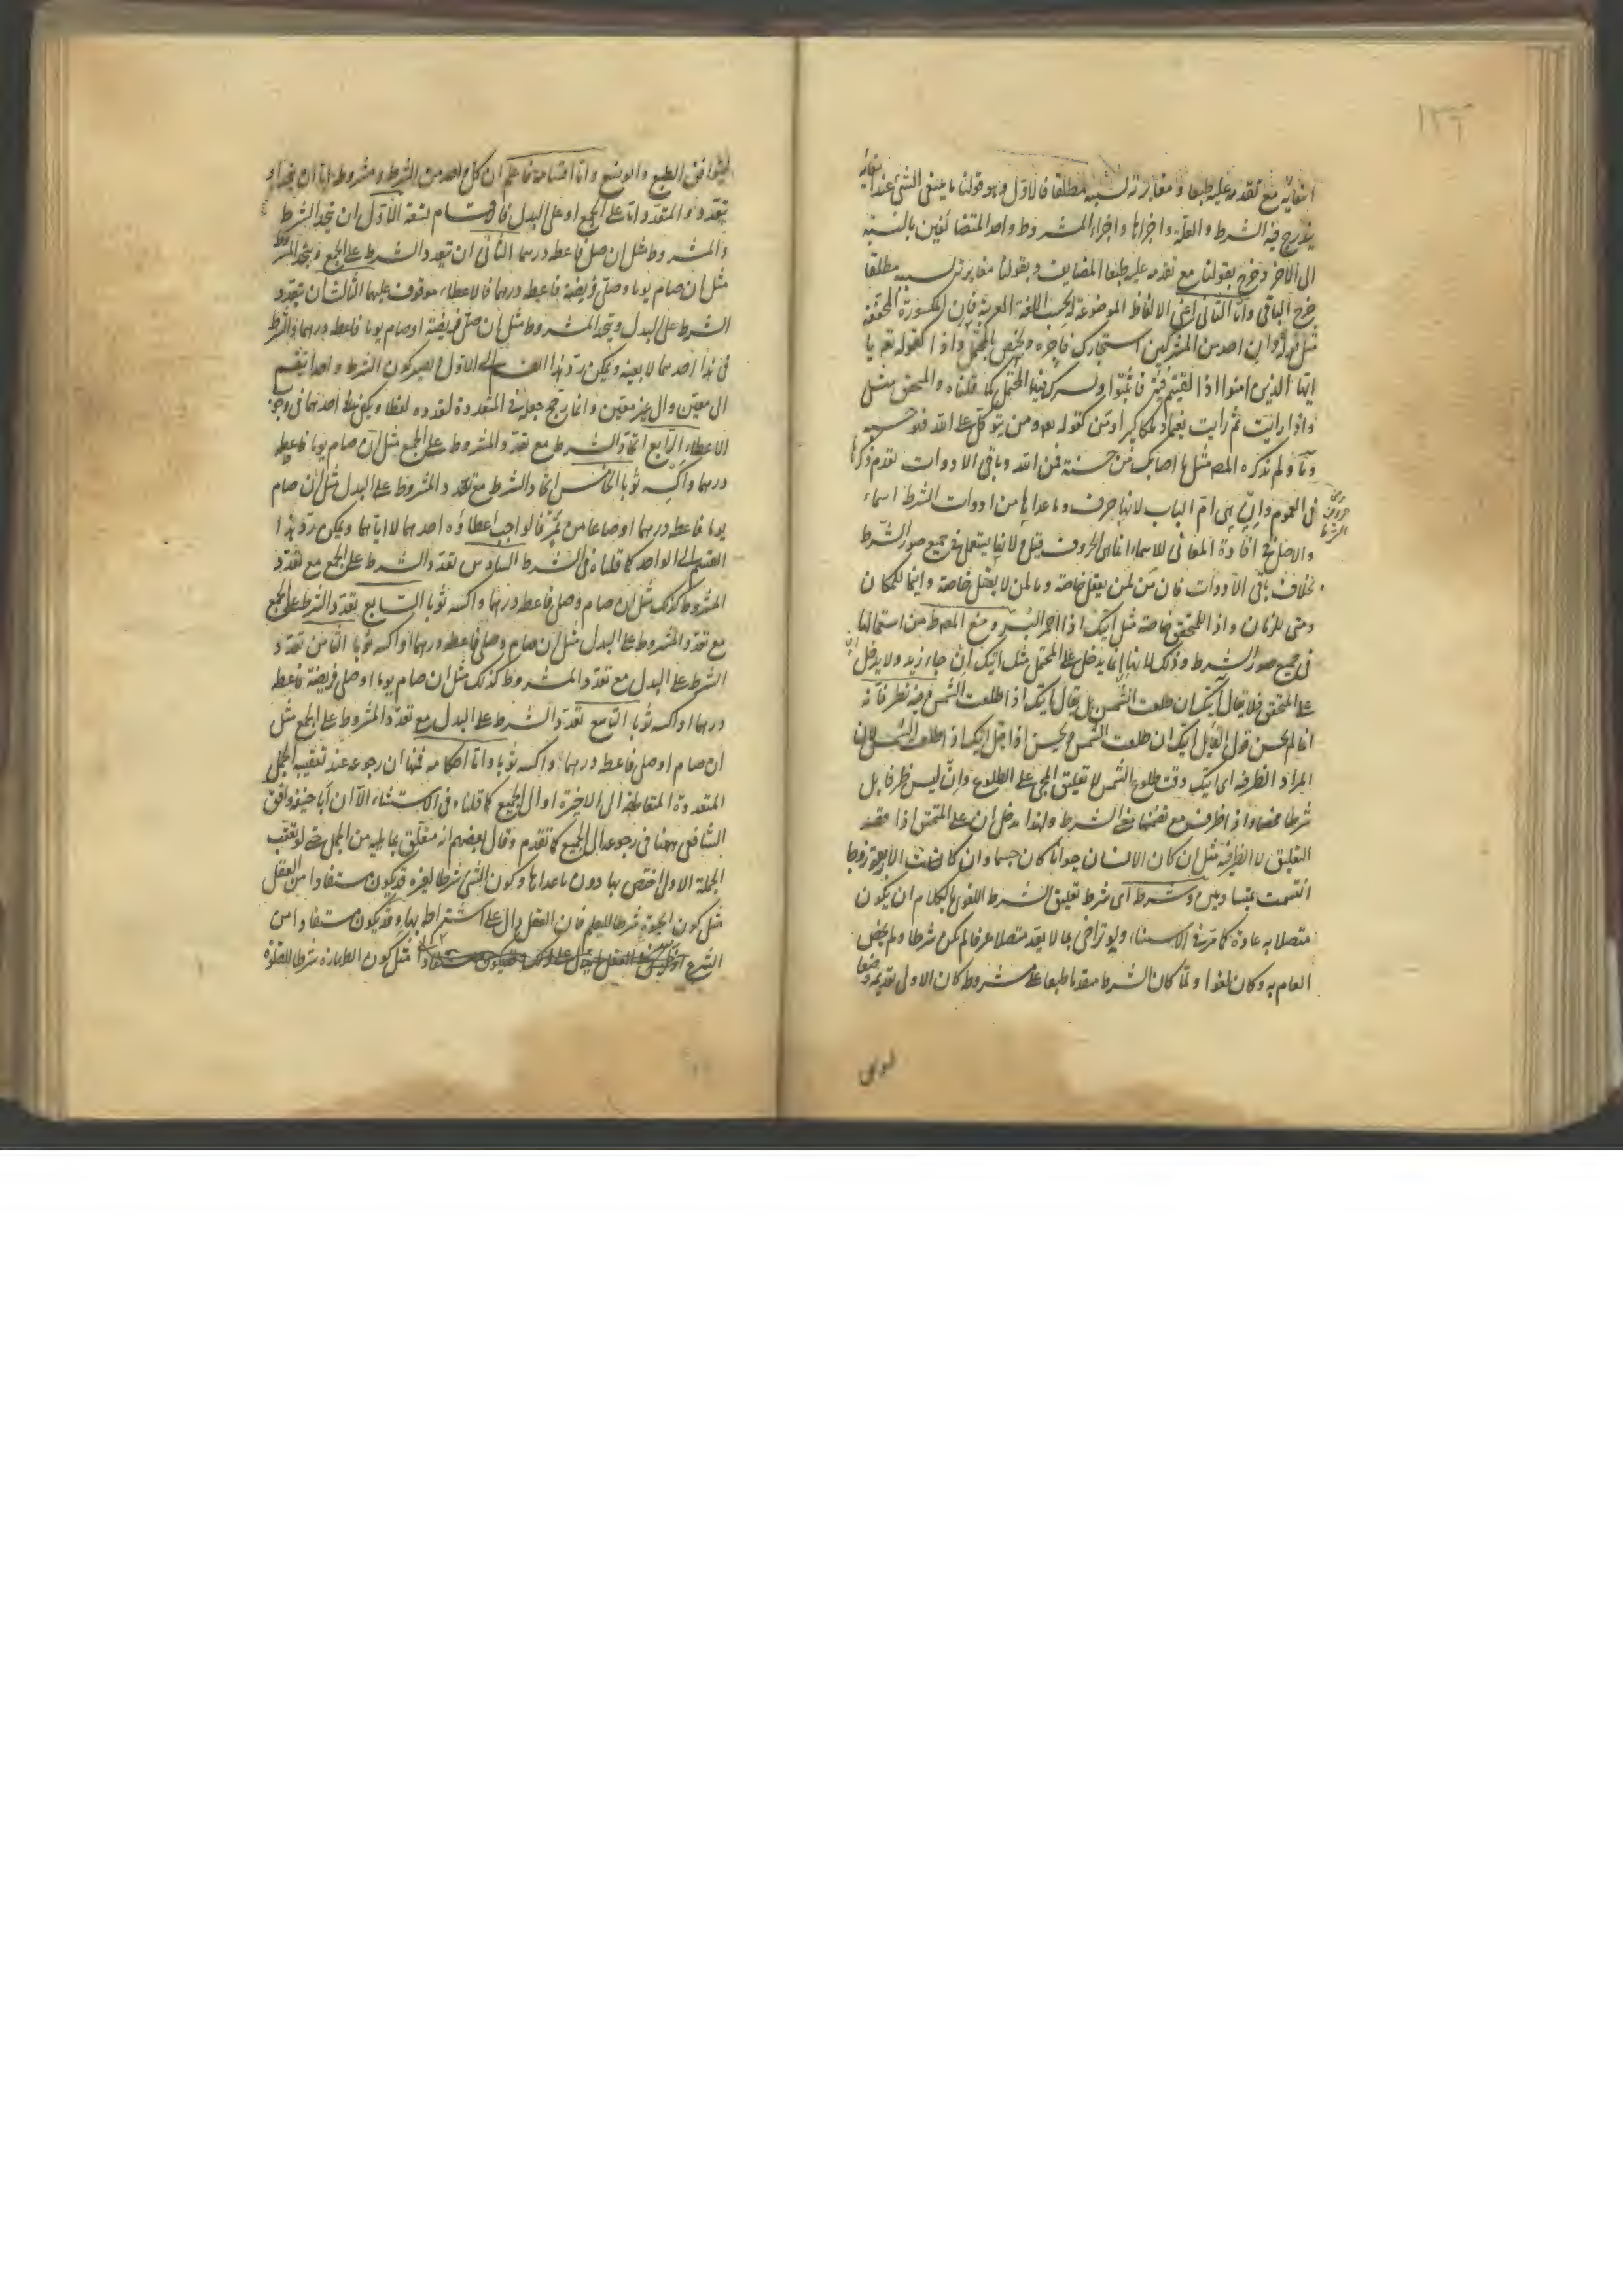 ١٣٦
انتفائه مع تقدمه عليه طبعا ومغايرته لسببه مطلقا فالاول وهو قولنا ما ينتفي الشئ عند انتفائه
يندرج فيه الشرط والعلة واجزاها واجزاء المشروط واحد المتضائفين بالنسبة
الى الآخر وخرج بقولنا مع تقدمه عليه طبعا المضايف وبقولنا مغايرته لسببه مطلقا
خرج الباقي واما الثاني اعني الالفاظ الموضوعة له بحسب اللغة العربية فان المكسورة المخففة
مثل قوله وان احد من المشركين استجارك فاجره ويختص بالمحتمل واذا كقوله تعه يا
ايها الذين امنوا اذا لقيتم فئة فاثبتوا وليس كل منها المحتمل كما قلناه والمحقق مثل
واذا رايت ثم رايت نعيما وملكا كبيرا ومن كقوله تعه ومن يتوكل على الله فهو حسبه
وما ولم يذكره المصه مثل ما اصابك من حسنة فمن الله وباقي الادوات تقدم ذكرها
في العموم وان هي ام الباب لانها حرف وما عداها من ادوات الشرط اسماء
حروف الشرط
والاصل في افادة المعاني للاسماء انما هي الحروف قيل ولانها يستعمل في جميع صور الشرط
بخلاف باقي الادوات فان من لمن يعقل خاصة وما لمن لا يعقل خاصة واينما للمكان
ومتى للزمان واذا للمتحقق خاصة مثل آتيك اذا احمر البسر ومنع المصه من استعمالها
في جميع صور الشرط وذلك لانها انما يدخل على المحتمل مثل آتيك ان جاء زيد ولا يدخل ان
على المتحقق فلا يقال آتيك ان طلعت الشمس بل يقال آتيك اذا طلعت الشمس وفيه نظر فانه
انما لم يحسن قول القايل آتيك ان طلعت الشمس ويحسن اذا قيل آتيك اذا طلعت الشمس لان
المراد الظرفية اى آتيك وقت طلوع الشمس لا تعليق المجئ على الطلوع وان ليس ظرفا بل
شرطا محضا واذا ظرف مع تضمنها معنى الشرط ولهذا يدخل ان على المتحقق اذا قصد
التعليق لا الظرفية مثل ان كان الانسان حيوانا كان جسما وان كانت الاربعة زوجا
انقسمت بمتساويين وشرطه اى شرط تعليق الشرط اللغوى بالكلام ان يكون
متصلا به عادة كما مر في الاستثناء ولو تراخى بما لا يعد متصلا عرفا لم يكن شرطا ولم يخص
العام به وكان لغوا ولما كان الشرط مقدما طبعا على مشروطه كان الاولى تقديمه وضعا
ليتوافق
ليتوافق الطبع والوضع واما اقسامه فاعلم ان كل واحد من الشرط ومشروطه اما ان يتحد او
يتعدد والمتعدد اما على الجمع او على البدل فالاقسام تسعة الاول ان يتحد الشرط
والمشروط مثل ان صلى فاعطه درهما الثاني ان يتعدد الشرط على الجمع ويتحد المشروط
مثل ان صام يوما وصلى فريضة فاعطه درهما فالاعطاء موقوف عليهما الثالث ان يتعدد
الشرط على البدل ويتحد المشروط مثل ان صلى فريضة او صام يوما فاعطه درهما فالشرط
في هذا احدهما لا بعينه ويمكن رد هذا القسم الى الاول فيصير كون الشرط واحدا ينقسم
الى معين والى غير معين وانما رجح جعله في المتعددة لتعدده لفظا ويكفي احدهما في وجوب
الاعطاء الرابع اتحاد الشرط مع تعدد المشروط على الجمع مثل ان صام يوما فاعطه
درهما واكسه ثوبا الخامس اتحاد الشرط مع تعدد المشروط على البدل مثل ان صام
يوما فاعطه درهما او صاعا من بر فالواجب اعطاؤه احدهما لا اياهما ويمكن رد هذا
القسم الى الواحد كما قلناه في الشرط السادس تعدد الشرط على الجمع مع تعدد
المشروط كذلك مثل ان صام وصلى فاعطه درهما واكسه ثوبا السابع تعدد الشرط على الجمع
مع تعدد المشروط على البدل مثل ان صام وصلى فاعطه درهما او اكسه ثوبا الثامن تعدد
الشرط على البدل مع تعدد المشروط كذلك مثل ان صام يوما او صلى فريضة فاعطه
درهما او اكسه ثوبا التاسع تعدد الشرط على البدل مع تعدد المشروط على الجمع مثل
ان صام او صلى فاعطه درهما واكسه ثوبا واما احكامه فمنها ان رجوعه عند تعقيب الجمل
المتعددة المتعاطفة الى الاخيرة او الى الجميع كما قلناه في الاستثناء الا ان ابا حنيفة وافق
الشافعي ههنا في رجوعه الى الجميع كما تقدم وقال بعضهم انه متعلق بما يليه من الجمل حتى لو تعقب
الجملة الاولى اختص بها دون ما عداها وكون الشئ شرطا لغيره قد يكون مستفادا من العقل
مثل كون الحيوة شرطا للعلم فان العقل دال على اشتراطه بها وقد يكون مستفادا من
الشرع مثل كون الطهارة شرطا للصلوة